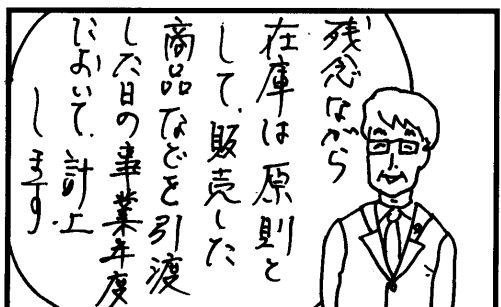 残念ながら
在庫は原則と
して、販売した
商品などを引渡
した日の事業年度
において、計上
します